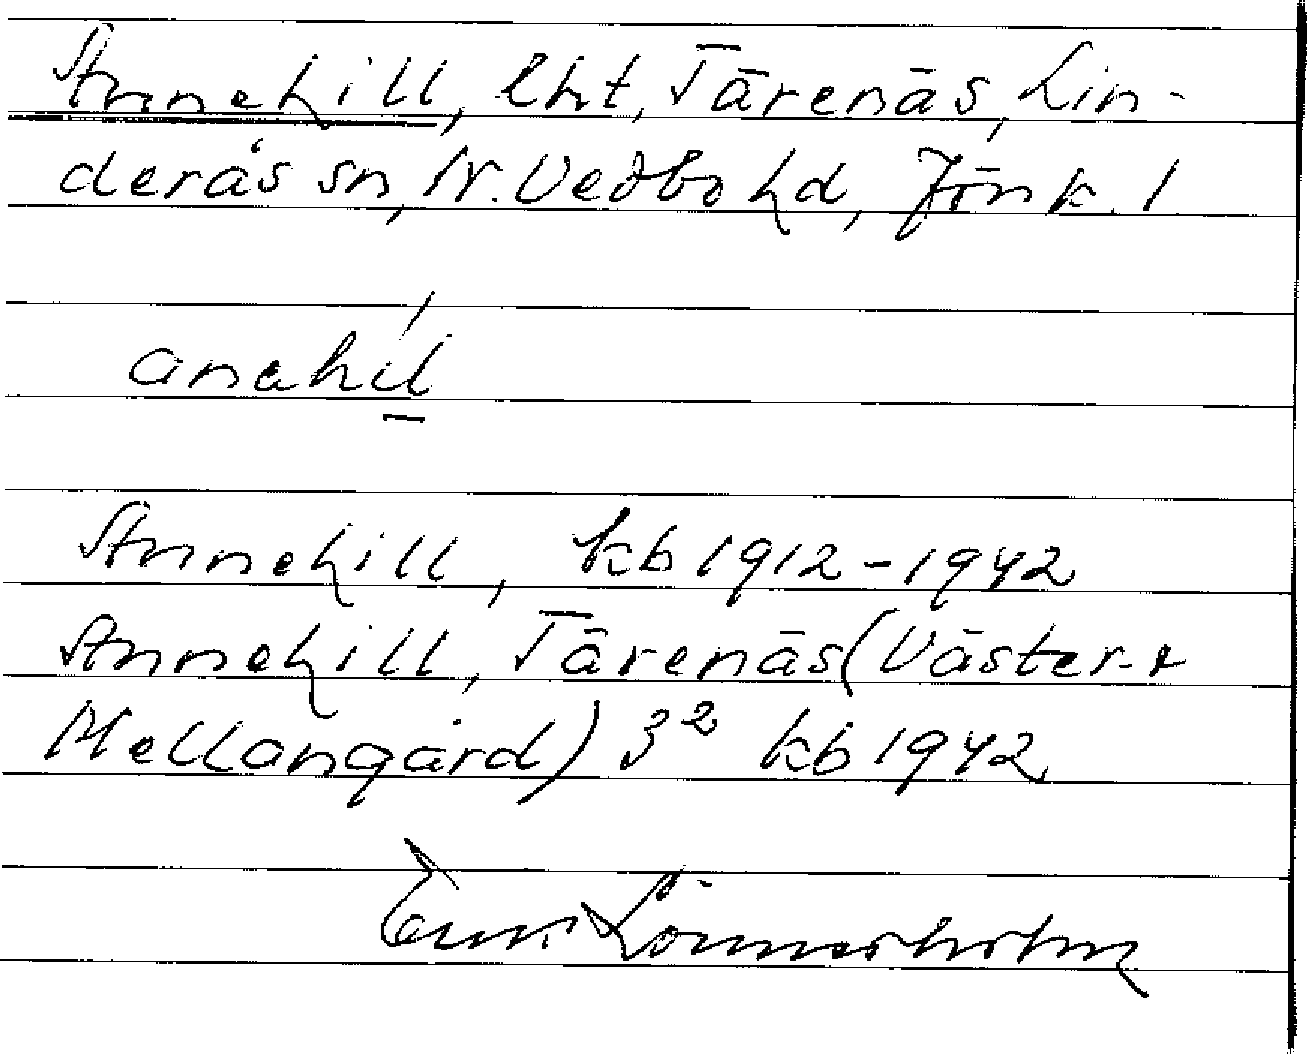 Annehill, lht, Tärenäs, Lin-
derås sn, N. Vedbo hd, Jönk. l
anehil
Annehill, kb 1912-1942
Annehill, Tärenäs (Väster- &
Mellangård) 3² kb 1942
Lönnerholm